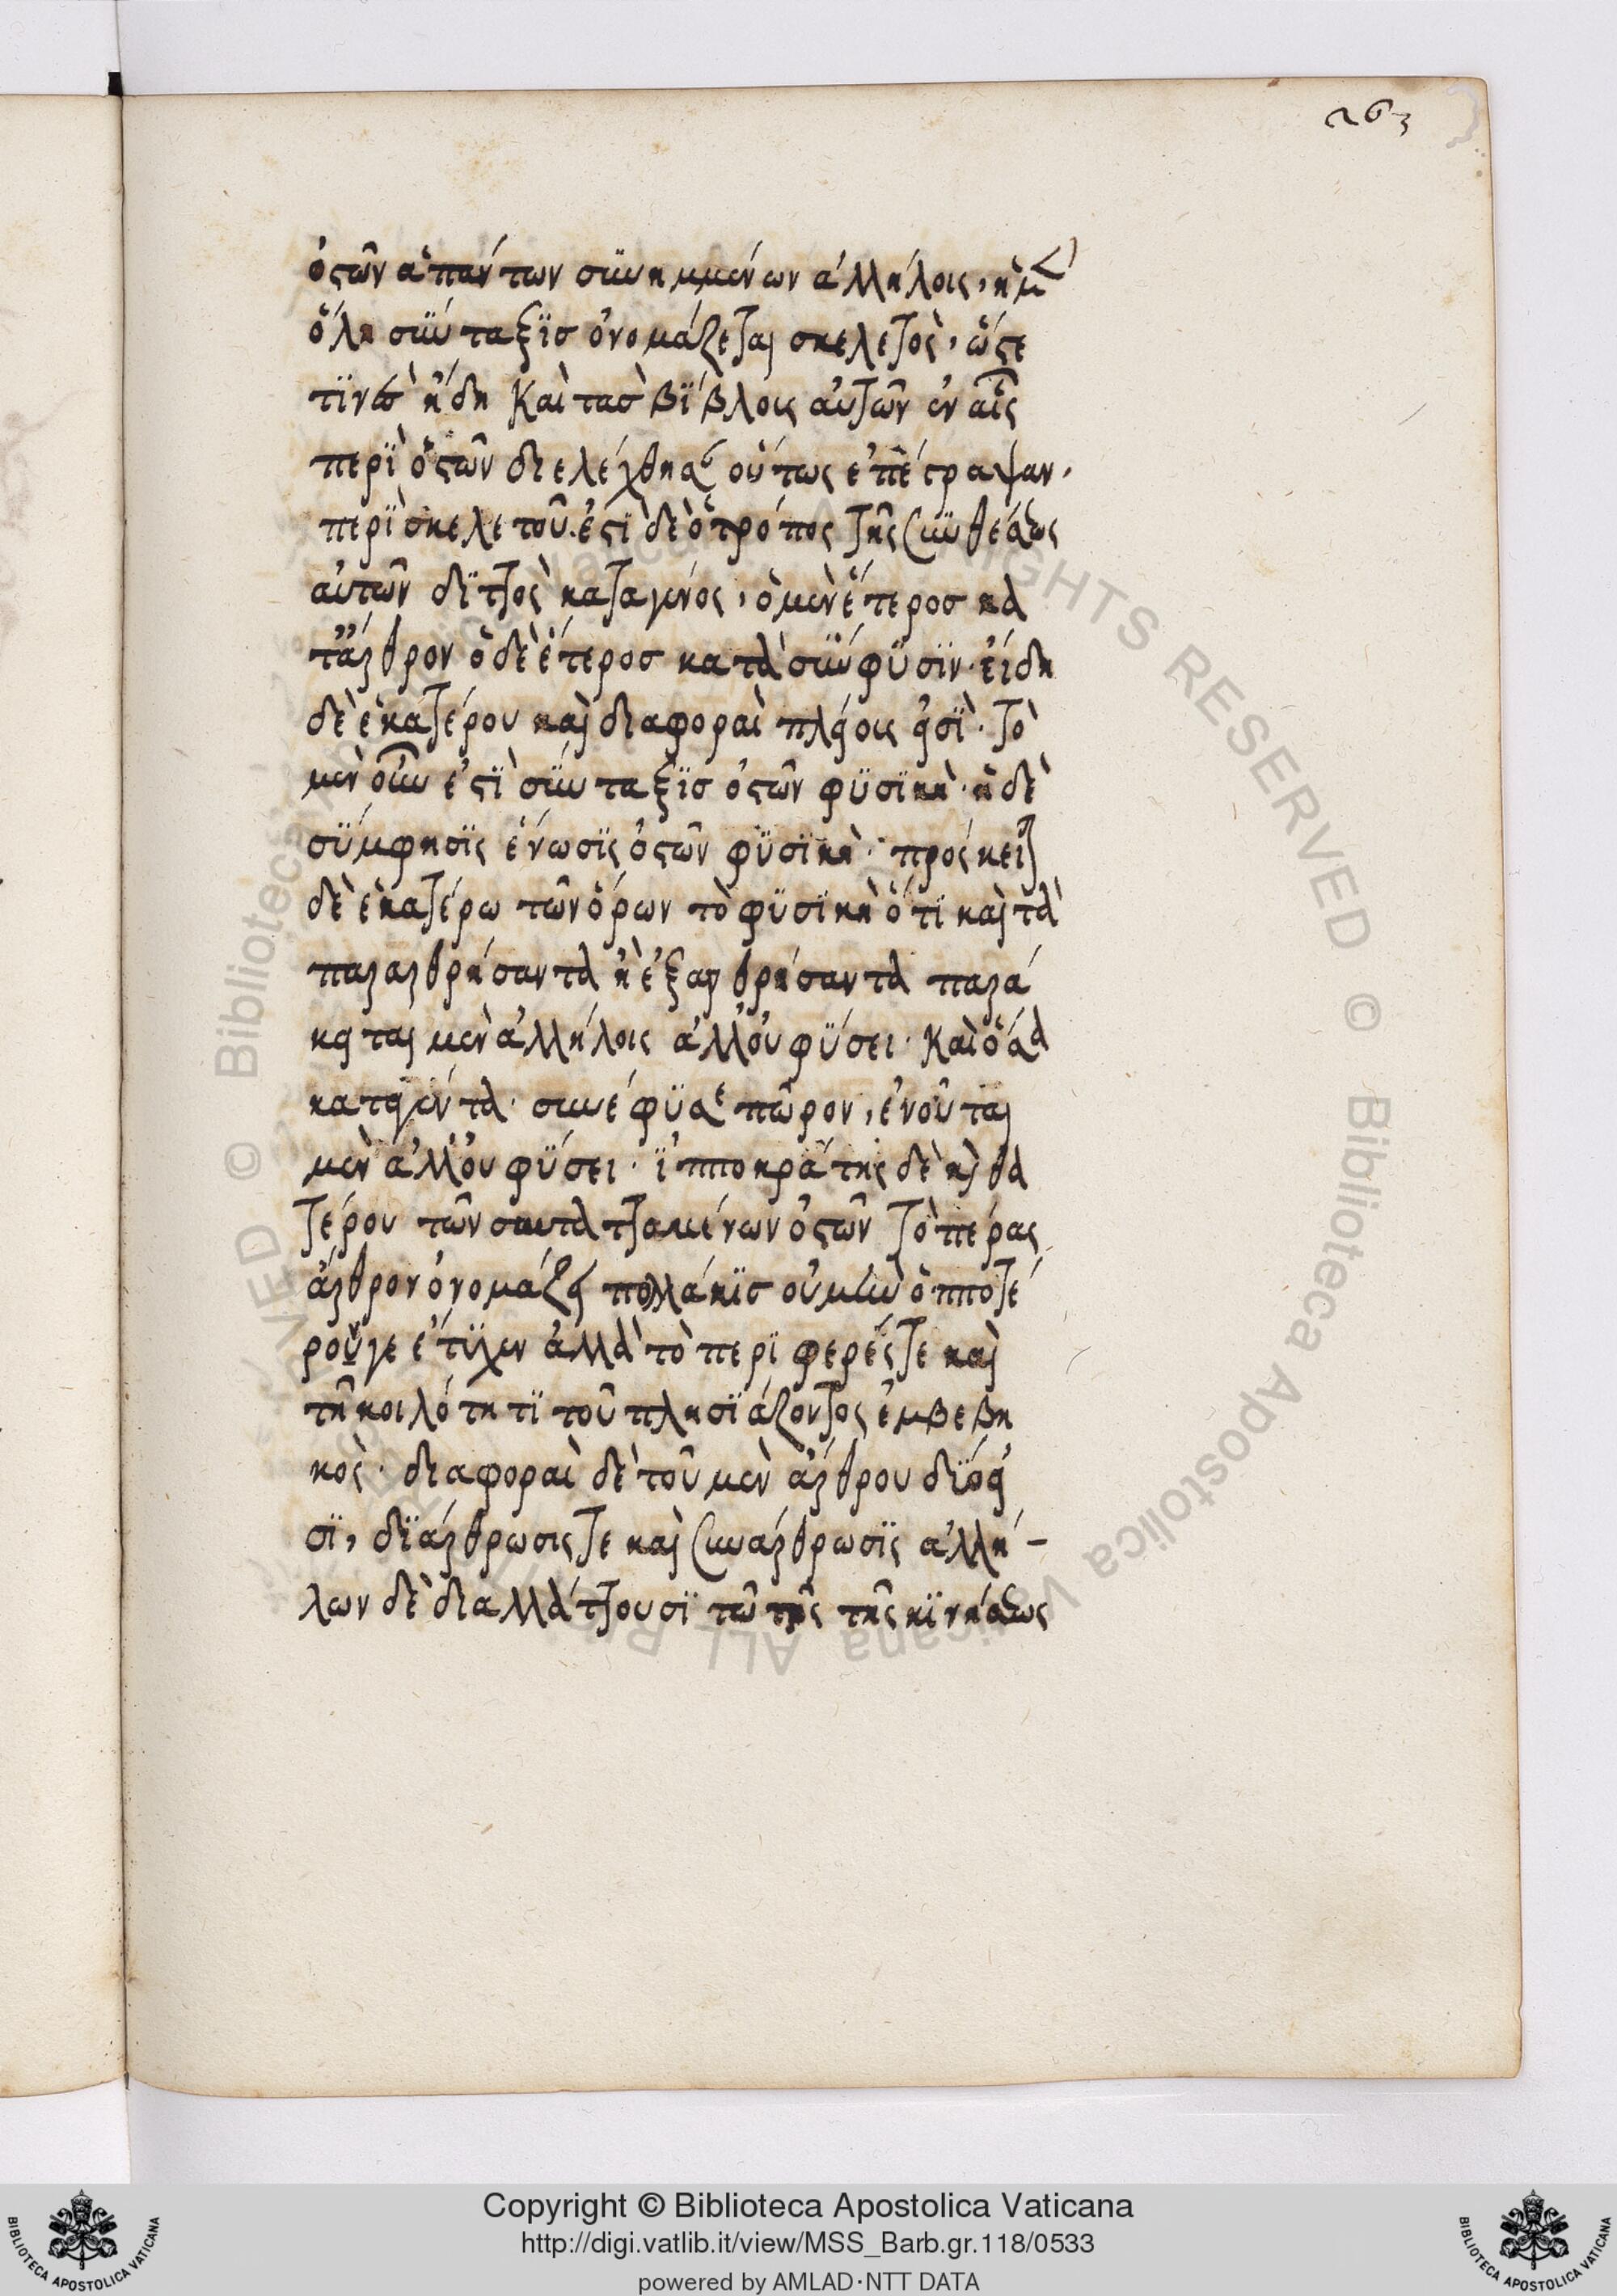 263
ὀστῶν ἁπάντων συνημμένων ἀλλήλοις, ἡ μὲν
ὅλη σύνταξϊσ ὀνομάζεται σκελετὸς, ὥστε
τϊνὲσ ἤδη Καὶ τὰσ βΐβλους αὐτῶν ἐν αἷς
περῒ ὀστῶν διελέχθησαν οὕτως ἐπέγραψαν,
περῒ σκελετοῦ. ἐστῒ δὲ ὁ τρόπος τῆς συνθέσεως
αὐτῶν δϊττὸς κατὰ γένος, ὁ μὲν ἕτεροσ κα
τ' ἄρθρον ὁ δὲ ἕτεροσ κατὰ σύμφϋσϊν· εἴδη
δὲ ἑκατέρου καὶ διαφοραὶ πλείους εἰσῒ· τὸ
μὲν οὖν ἐστῒ σύνταξϊσ ὀστῶν φϋσϊκὴ· ἡ δὲ
σΰμφησϊς ἕνωσϊς ὀστῶν φϋσϊκὴ· πρόσκειται
δὲ ἑκατέρω τῶν ὅρων τὸ φϋσϊκὴ ὅτϊ καὶ τὰ
παραρθρήσαντα ἢ ἐξαρθρήσαντα παρά
κειται μὲν ἀλλήλοις ἀλλ' οὐ φΰσει· Καὶ ὅσα
κατεαγέντα· συνέφϋσε πῶρον, ἑνοῦται
μὲν ἀλλ' οὐ φΰσει· ἱπποκράτης δὲ καὶ θα
τέρου τῶν συνταττομένων ὀστῶν τὸ πέρας
ἄρθρον ὀνομάζει πολλάκϊσ οὐ μὴν ὁπποτέ
ρου γε ἔτϋχεν ἀλλὰ τὸ περϊφερές τε καὶ
τῆ κοιλότητϊ τοῦ πλησϊάζοντος ἐμβεβη
κὸς· διαφοραὶ δὲ τοῦ μὲν ἄρθρου δϋό εἰ
σϊ, δϊάρθρωσις τε καὶ συνάρθρωσϊς ἀλλή-
λων δὲ διαλλάττουσϊ τῶ τῆς τῆς κϊνήσεως
Copyright © Biblioteca Apostolica Vaticana
http://digi.vatlib.it/view/MSS_Barb.gr.118/0533
powered by AMLAD·NTT DATA